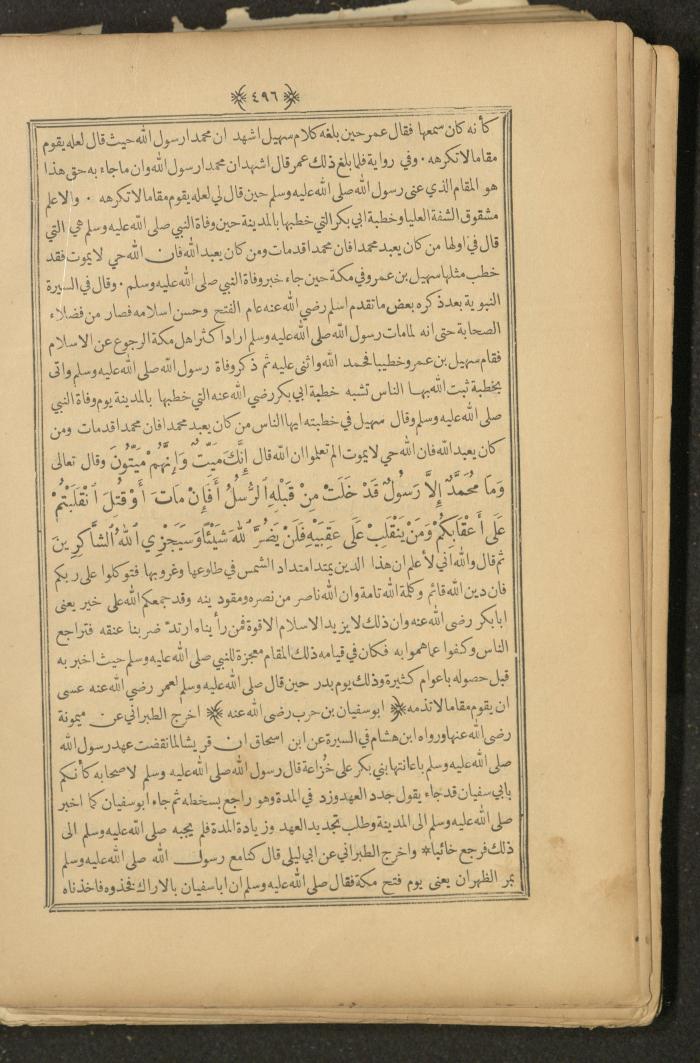 ٤٩٦
كأنه كان سمعها فقال عمر حين بلغه كلام سهيل اشهد ان محمدا رسول الله حيث قال لعله يقوم
مقاما لا تكرهه . وفي رواية فلما بلغ ذلك عمر قال اشهد ان محمدا رسول الله وان ما جاء به حق هذا
هو المقام الذي عنى رسول الله صلى الله عليه وسلم حين قال لي لعله يقوم مقاما لا تكرهه . والاعلم
مشقوق الشفة العليا وخطبة ابي بكر التي خطبها بالمدينة حين وفاة النبي صلى الله عليه وسلم هي التي
قال في اولها من كان يعبد محمدا فان محمدا قد مات ومن كان يعبد الله فان الله حي لا يموت فقد
خطب مثلها سهيل بن عمرو في مكة حين جاء خبر وفاة النبي صلى الله عليه وسلم . وقال في السيرة
النبوية بعد ذكره بعض ما تقدم اسلم رضي الله عنه عام الفتح وحسن اسلامه فصار من فضلاء
الصحابة حتى انه لما مات رسول الله صلى الله عليه وسلم اراد اكثر اهل مكة الرجوع عن الاسلام
فقام سهيل بن عمرو خطيبا فحمد الله واثنى عليه ثم ذكر وفاة رسول الله صلى الله عليه وسلم واتى
بخطبة ثبت الله بها الناس تشبه خطبة ابي بكر رضي الله عنه التي خطبها بالمدينة يوم وفاة النبي
صلى الله عليه وسلم وقال سهيل في خطبته ايها الناس من كان يعبد محمدا فان محمدا قد مات ومن
كان يعبد الله فان الله حي لا يموت الم تعلموا ان الله قال إِنَّكَ مَيِّتٌ وَإِنَّهُمْ مَيِّتُونَ وقال تعالى
وَمَا مُحَمَّدٌ إِلاَّ رَسُولٌ قَدْ خَلَتْ مِنْ قَبْلِهِ ٱلرُّسُلُ أَفَإِنْ مَاتَ أَوْ قُتِلَ ٱنْقَلَبْتُمْ
عَلَى أَعْقَابِكُمْ وَمَنْ يَنْقَلِبْ عَلَى عَقِبَيْهِ فَلَنْ يَضُرَّ ٱللهَ شَيْئًا وَسَيَجْزِي ٱللهُ ٱلشَّاكِرِينَ
ثم قال والله اني لأعلم ان هذا الدين يمتد امتداد الشمس في طلوعها وغروبها فتوكلوا على ربكم
فان دين الله قائم وكلمة الله تامة وان الله ناصر من نصره ومقو دينه وقد جمعكم الله على خير يعنى
ابا بكر رضي الله عنه وان ذلك لا يزيد الاسلام الا قوة فمن رأيناه ارتد ضربنا عنقه فتراجع
الناس وكفوا عما هموا به فكان في قيامه ذلك المقام معجزة للنبي صلى الله عليه وسلم حيث اخبر به
قبل حصوله باعوام كثيرة وذلك يوم بدر حين قال صلى الله عليه وسلم لعمر رضي الله عنه عسى
ان يقوم مقاما لا تذمه ﴿ ابو سفيان بن حرب رضي الله عنه ﴾ اخرج الطبراني عن ميمونة
رضي الله عنها ورواه ابن هشام في السيرة عن ابن اسحاق ان قريشا لما نقضت عهد رسول الله
صلى الله عليه وسلم باعانتها بني بكر على خُزاعة قال رسول الله صلى الله عليه وسلم لاصحابه كأنكم
بابي سفيان قد جاء يقول جدد العهد وزد في المدة وهو راجع بسخطه ثم جاء ابو سفيان كما اخبر
صلى الله عليه وسلم الى المدينة وطلب تجديد العهد وزيادة المدة فلم يجبه صلى الله عليه وسلم الى
ذلك فرجع خائبا * واخرج الطبراني عن ابي ليلى قال كنا مع رسول الله صلى الله عليه وسلم
بمر الظهران يعنى يوم فتح مكة فقال صلى الله عليه وسلم ان ابا سفيان بالاراك فخذوه فاخذناه